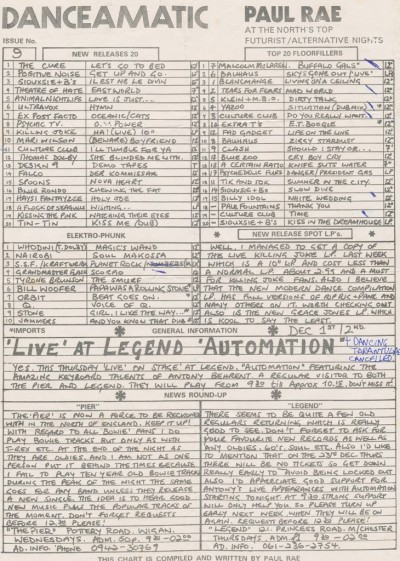 DANCEAMATIC PAUL RAE
AT THE NORTH'S TOP
FUTURIST/ALTERNATIVE NIGHTS
ISSUE No.
9 NEW RELEASES 20 TOP 20 FLOORFILLERS
1 THE CURE LET'S GO TO BED
2 POSITIVE NOISE GET UP AND GO
3 SIOUXSIE+B's IL EST NE LE DIVIN
4 THEATRE OF HATE EASTWORLD
5 ANIMAL NIGHTLIFE LOVE IS JUST...
6 ULTRAVOX HYMN
7 EX POST FACTO OCEANIC/CATS
8 PSYKIC T.V.
9 KILLING JOKE HA! (LIVE) 10"
10 MARI WILSON (BEWARE) BOYFRIEND
11 CULTURE CLUB I'LL TUMBLE FOR YA
12 THOMAS DOLBY SHE BLINDED ME WITH.
13 DESIGN DEMO TAPES
14 FALCO DER KOMMISSAR
15 SPOONS NOVA HEART
16 BLUE RONDO CHEWING THE FAT
17 HAYSI FANTYZEE HOLY JOE
18 A FLOCK OF SEAGULLS WISHING...
19 KISSING THE PINK WATCHING THEIR EYES
20 TIN-TIN KISS ME (DUB)
1 MALCOLM McLAREN BUFFALO GALS
2 BAUHAUS SKY'S GONE OUT/LIVE
3 BLANCMANGE LIVING ON THE CEIL..
4 TEARS FOR FEARS MAD WORLD
5 KLEIN+M.B.O. DIRTY TALK
6 YAZOO SITUATION (DUB MIX)
CULTURE CLUB DO YOU REALLY WANT
8 EXTRA T's E.T. BOOGIE
9 FAD GADGET LIFE ON THE LINE
10 BAUHAUS ZIGGY STARDUST
11 CLASH SHOULD I STAY OR...
12 BLUE ZOO CRY BOY CRY
13 A CERTAIN RATIO KNIFE SLITS WATER
14 PSYCHEDELIC FURS DANGER/PRESIDENT GAS
TIK AND TOK SUMMER IN THE CITY
SIOUXSIE+B's SLOWDIVE
17 BILLY IDOL WHITE WEDDING
PALE FOUNTAINS THANK YOU
CULTURE CLUB TIME
SIOUXSIE+B's KISS IN THE DREAMHOUSE
ELEKTRO-PHUNK NEW RELEASE SPOT LP's.
1 WHODINI (T.DOLBY) MAGIC'S WAND
2 NAIROBI SOUL MAKOSSA
3 S.S.F./KRAFTWERK PLANET ROCK/NUMBERS
4 GRANDMASTER FLASH SCORPIO
5 TYRONE BRUNSON THE SMURF
6 BILL WOLFER PAPA WAS A ROLLING STONE
7 ORBIT BEAT GOES ON.
8 Q. VOICE OF Q.
9 STONE GIRL, I LIKE THE WAY...
10 YARBROUGH
WELL, I MANAGED TO GET A COPY OF
THE LIVE KILLING JOKE LP. LAST WEEK
WHICH IS A 10" LP AND COST LESS THAN
A NORMAL LP. ABOUT 2.99 AND A MUST
FOR KILLING JOKE FANS. ALSO I BELIEVE
THAT THE NEW MODERN DANCE COMPILATION
LP HAS FULL VERSIONS OF
MANY OTHERS ON IT. WORTH CHECKING OUT
ALSO IS THE NEW GRACE JONES LP. WHICH
IS KOOL TO SAY THE LEAST.
*IMPORTS GENERAL INFORMATION DEC 1ST/2ND
'LIVE' AT LEGEND 'AUTOMATION' + DANCING TARANTULAS CANCELLED
YES, THIS THURSDAY 'LIVE' ON STAGE AT LEGEND. "AUTOMATION" FEATURING THE
AMAZING KEYBOARD TALENTS OF ANTONY BEHRENT A REGULAR VISITOR TO BOTH
THE PIER AND LEGEND. THEY WILL PLAY FROM 9.30 till Approx 10.15. DON'T MISS IT.
NEWS ROUND-UP
"PIER" "LEGEND"
'THE PIER' IS NOW A FORCE TO BE RECKONED
WITH IN THE NORTH OF ENGLAND. KEEP IT UP!
WITH REGARD TO ALL BOWIE FANS I DO
PLAY BOWIE TRACKS BUT ONLY AS WITH
T-REX ETC. AT THE END OF THE NIGHT AS
THEY ARE OLDIES. AND I AM NOT AS ONE
PERSON PUT IT BEHIND THE TIMES BECAUSE
I FAIL TO PLAY TEN YEAR OLD BOWIE TRACKS
DURING THE PEAK OF THE NIGHT THE SAME
GOES FOR ANY BAND UNLESS THEY RELEASE
A NEW SINGLE. THE IDEA IS TO MEAN GOOD
NEW MUSIC PLUS THE POPULAR TRACKS OF
THE MOMENT. DON'T FORGET REQUESTS
BEFORE 12.30 PLEASE!
"THE PIER" POTTERY ROAD, WIGAN.
WEDNESDAYS. ADM. 50p. 9.30-02.00
AD. INFO. Phone 0942-30769
THERE SEEMS TO BE QUITE A FEW OLD
REGULARS RETURNING WHICH IS REALLY
GOOD TO SEE. DON'T FORGET TO ASK FOR
YOUR FAVOURITE NEW RECORDS AS WELL AS
ANY OLDIES, GO'S, SOUL ETC. ALSO I'D LIKE
TO MENTION THAT ON THE 23RD DEC THURS
THERE WILL BE NO TICKETS SO GET DOWN
REALLY EARLY TO AVOID BEING LOCKED OUT.
ALSO I'D APPRECIATE GOOD SUPPORT FOR
ANTONY'S LIVE APPEARANCES WITH AUTOMATION
STARTING TONIGHT AT 9.30. STRONG SUPPORT
WILL ONLY HELP YOU. SO PLEASE TURN UP
EARLY NEXT WEEK WHEN THEY WILL BE ON
AGAIN. REQUESTS BEFORE 12.30 PLEASE!
"LEGEND" 21 PRINCESS ROAD. M/CHESTER
THURSDAYS. ADM. £1 9.30-02.00
AD. INFO. 061-236-2754.
THIS CHART IS COMPILED AND WRITTEN BY PAUL RAE